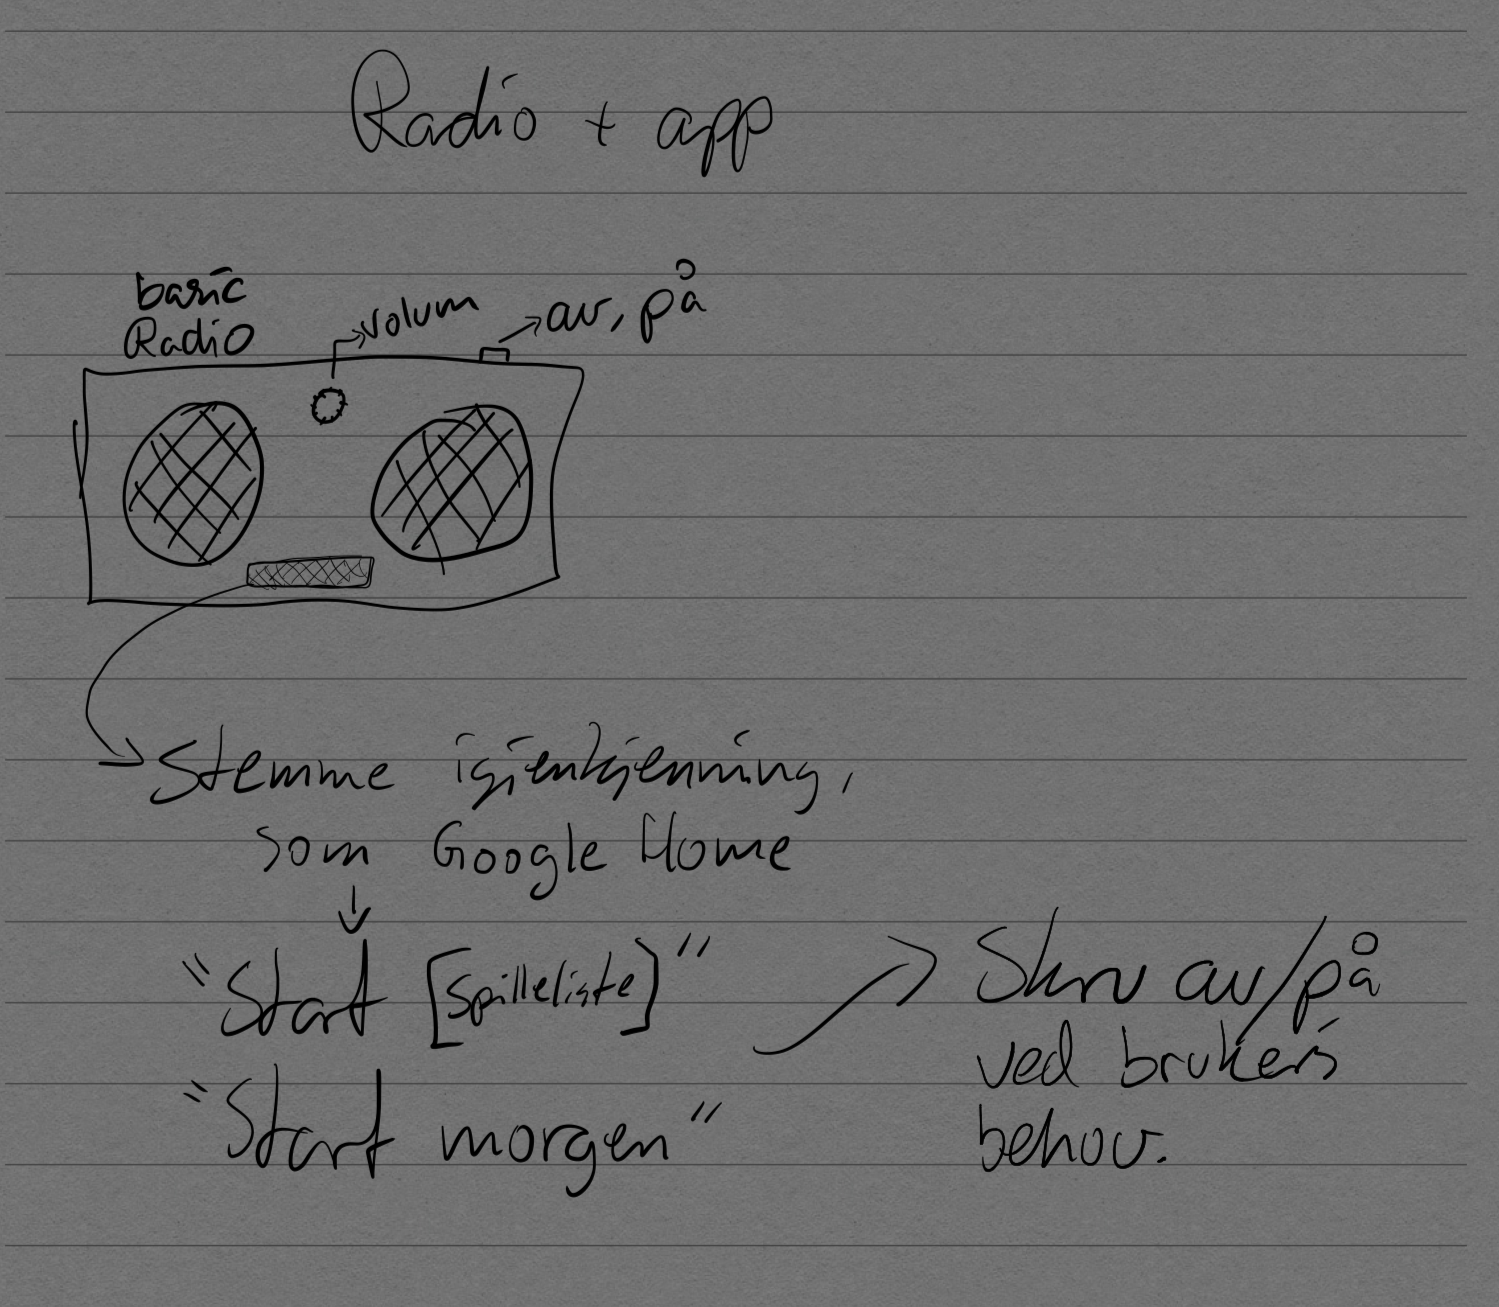 Radio + app
basic
Radio
volum
av, på
Stemme igjenkjenning,
som Google Home
"Start [Spilleliste]"
"Start morgen"
Skru av/på
ved brukers
behov.